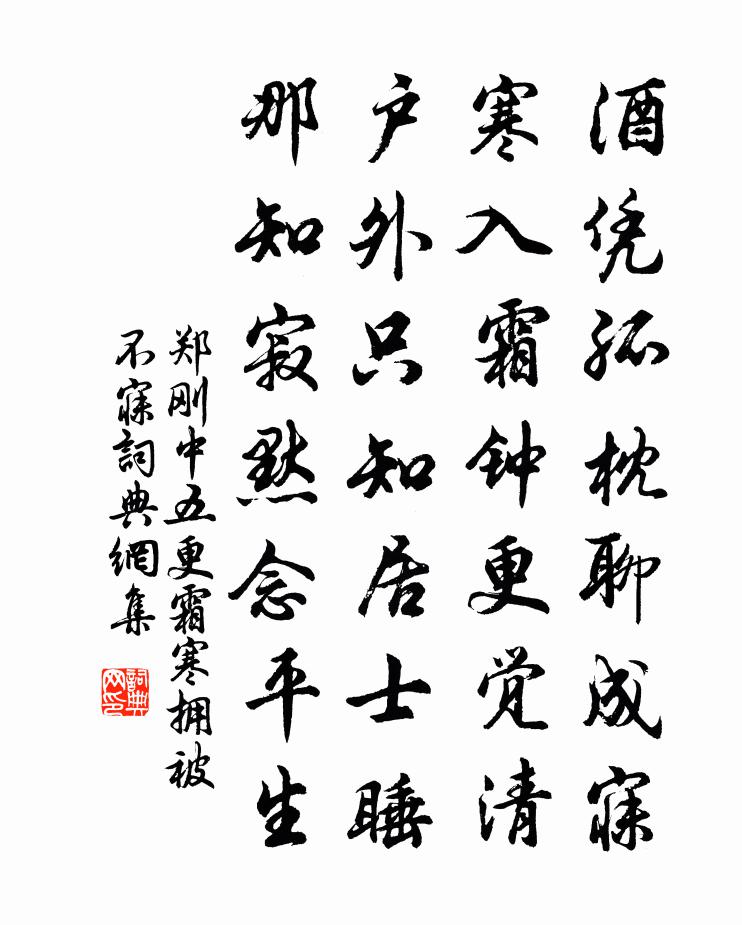 酒凭孤枕聊成寐
寒入霜钟更觉清
户外只知居士睡
那知寂默念平生
郑刚中五更霜寒拥被
不寐詞典網集
詞典
网印